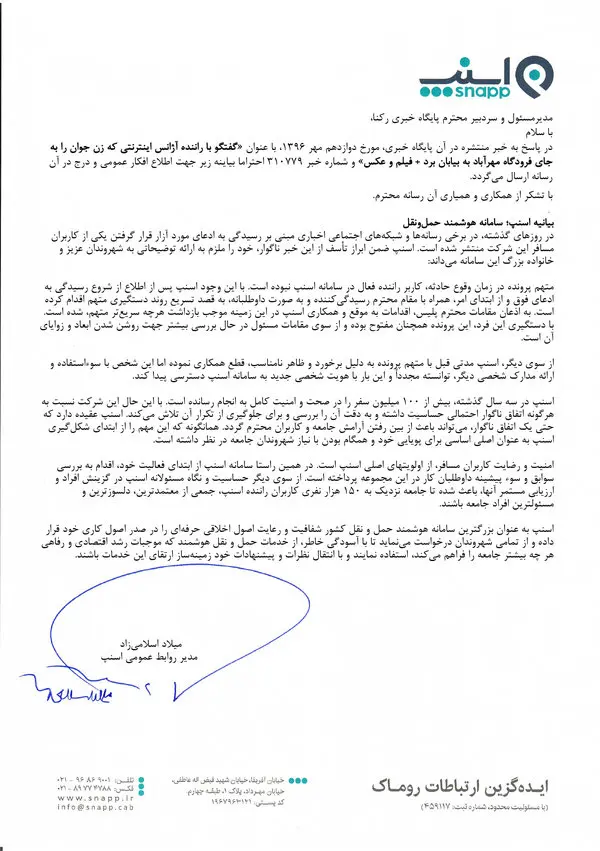 اسنپ
snapp
مدیرمسئول و سردبیر محترم پایگاه خبری رکنا،
با سلام
در پاسخ به خبر منتشره در آن پایگاه خبری، مورخ دوازدهم مهر ۱۳۹۶، با عنوان «گفتگو با راننده آژانس اینترنتی که زن جوان را به
جای فرودگاه مهرآباد به بیابان برد + فیلم و عکس» و شماره خبر ۳۱۰۷۷۹ احتراما بیاینه زیر جهت اطلاع افکار عمومی و درج در آن
رسانه ارسال می‌گردد.
با تشکر از همکاری و همیاری آن رسانه محترم.
بیانیه اسنپ؛ سامانه هوشمند حمل‌ونقل
در روزهای گذشته، در برخی رسانه‌ها و شبکه‌های اجتماعی اخباری مبنی بر رسیدگی به ادعای مورد آزار قرار گرفتن یکی از کاربران
مسافر این شرکت منتشر شده است. اسنپ ضمن ابراز تأسف از این خبر ناگوار، خود را ملزم به ارائه توضیحاتی به شهروندان عزیز و
خانواده بزرگ این سامانه می‌داند:
متهم پرونده در زمان وقوع حادثه، کاربر راننده فعال در سامانه اسنپ نبوده است. با این وجود اسنپ پس از اطلاع از شروع رسیدگی به
ادعای فوق و از ابتدای امر، همراه با مقام محترم رسیدگی‌کننده و به صورت داوطلبانه، به قصد تسریع روند دستگیری متهم اقدام کرده
است. به اذعان مقامات محترم پلیس، اقدامات به موقع و همکاری اسنپ در این زمینه موجب بازداشت هرچه سریع‌تر متهم، شده است.
با دستگیری این فرد، این پرونده همچنان مفتوح بوده و از سوی مقامات مسئول در حال بررسی بیشتر جهت روشن شدن ابعاد و زوایای
آن است.
از سوی دیگر، اسنپ مدتی قبل با متهم پرونده به دلیل برخورد و ظاهر نامناسب، قطع همکاری نموده اما این شخص با سوءاستفاده و
ارائه مدارک شخصی دیگر، توانسته مجدداً و این بار با هویت شخصی جدید به سامانه اسنپ دسترسی پیدا کند.
اسنپ در سه سال گذشته، بیش از ۱۰۰ میلیون سفر را در صحت و امنیت کامل به انجام رسانده است. با این حال این شرکت نسبت به
هرگونه اتفاق ناگوار احتمالی حساسیت داشته و به دقت آن را بررسی و برای جلوگیری از تکرار آن تلاش می‌کند. اسنپ عقیده دارد که
حتی یک اتفاق ناگوار، می‌تواند باعث از بین رفتن آرامش جامعه و کاربران محترم گردد. همانگونه که این مهم را از ابتدای شکل‌گیری
اسنپ به عنوان اصلی اساسی برای پویایی خود و همگام بودن با نیاز شهروندان جامعه در نظر داشته است.
امنیت و رضایت کاربران مسافر، از اولویتهای اصلی اسنپ است. در همین راستا سامانه اسنپ از ابتدای فعالیت خود، اقدام به بررسی
سوابق و سوء پیشینه داوطلبان کار در این مجموعه پرداخته است. از سوی دیگر حساسیت و نگاه مسئولانه اسنپ در گزینش افراد و
ارزیابی مستمر آنها، باعث شده تا جامعه نزدیک به ۱۵۰ هزار نفری کاربران راننده اسنپ، جمعی از معتمدترین، دلسوزترین و
مسئولترین افراد جامعه باشند.
اسنپ به عنوان بزرگترین سامانه هوشمند حمل و نقل کشور شفافیت و رعایت اصول اخلاقی حرفه‌ای را در صدر اصول کاری خود قرار
داده و از تمامی شهروندان درخواست می‌نماید تا با آسودگی خاطر، از خدمات حمل و نقل هوشمند که موجبات رشد اقتصادی و رفاهی
هر چه بیشتر جامعه را فراهم می‌کند، استفاده نمایند و با انتقال نظرات و پیشنهادات خود زمینه‌ساز ارتقای این خدمات باشند.
میلاد اسلامی‌زاد
مدیر روابط عمومی اسنپ
ایده‌گزین ارتباطات رومـاک
(با مسئولیت محدود، شماره ثبت: ۴۵۹۱۱۷)
خیابان آفریقا، خیابان شهید فیض اله عاطفی،
خیابان مهـرداد، پلاک ۱، طبقه چهارم.
کد پستی: ۱۹۶۷۹۶۳۱۲۱
تلفـن: ۹۰۰۱ ۸۶ ۹۶ - ۰۲۱
فکـس: ۴۷۸۸ ۷۷ ۸۹ - ۰۲۱
www.snapp.ir
info@snapp.cab